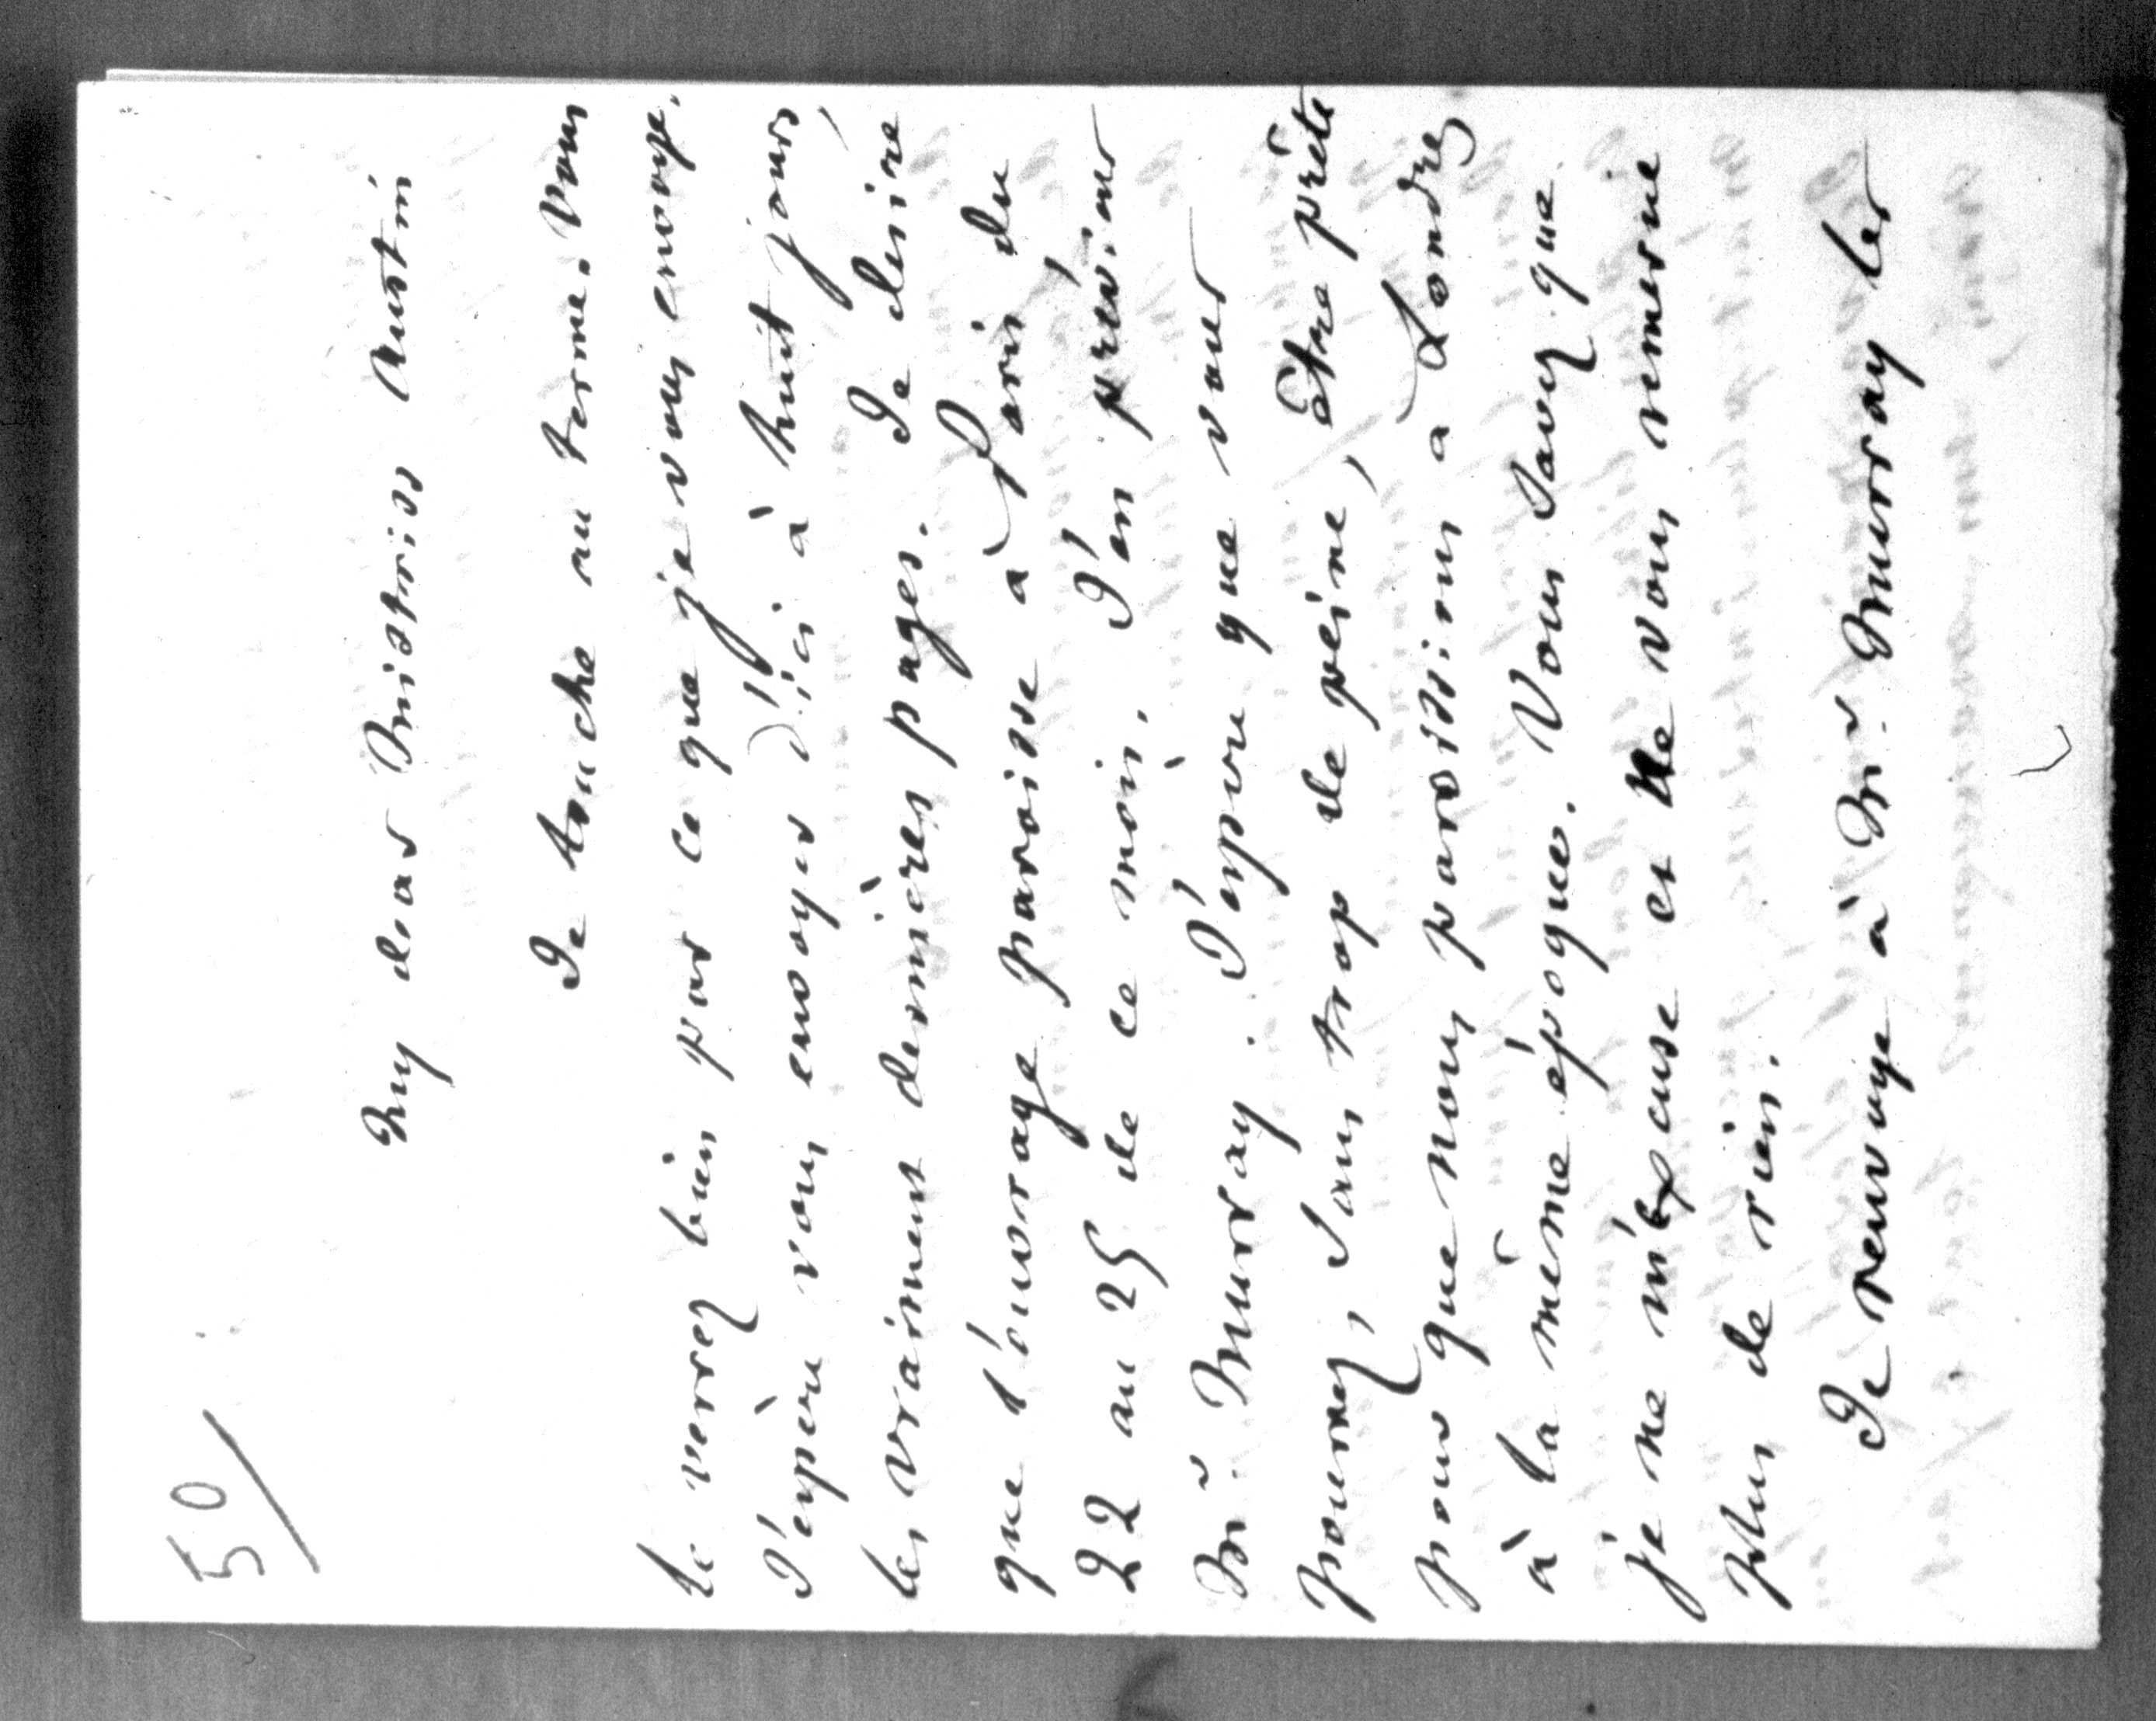 50/
My dear Mistriss Austin
Je touche au terme. Vous
le verrez bien par ce que je vous envoye.
J'espère vous envoyer d'ici à huit jours
les vraiment dernières pages. Je desire
que l'ouvrage paroisse à Paris du
22 au 25 de ce mois. J'en préviens
Mr. Murray. J'espère que vous
pourrez, sans trop de peine, être prête
pour que nous paroissions a Londres
à la même époque. Vous savez que
je ne m'excuse et ne vous remercie
plus de rien.
Je renvoye à Mr. Murray les